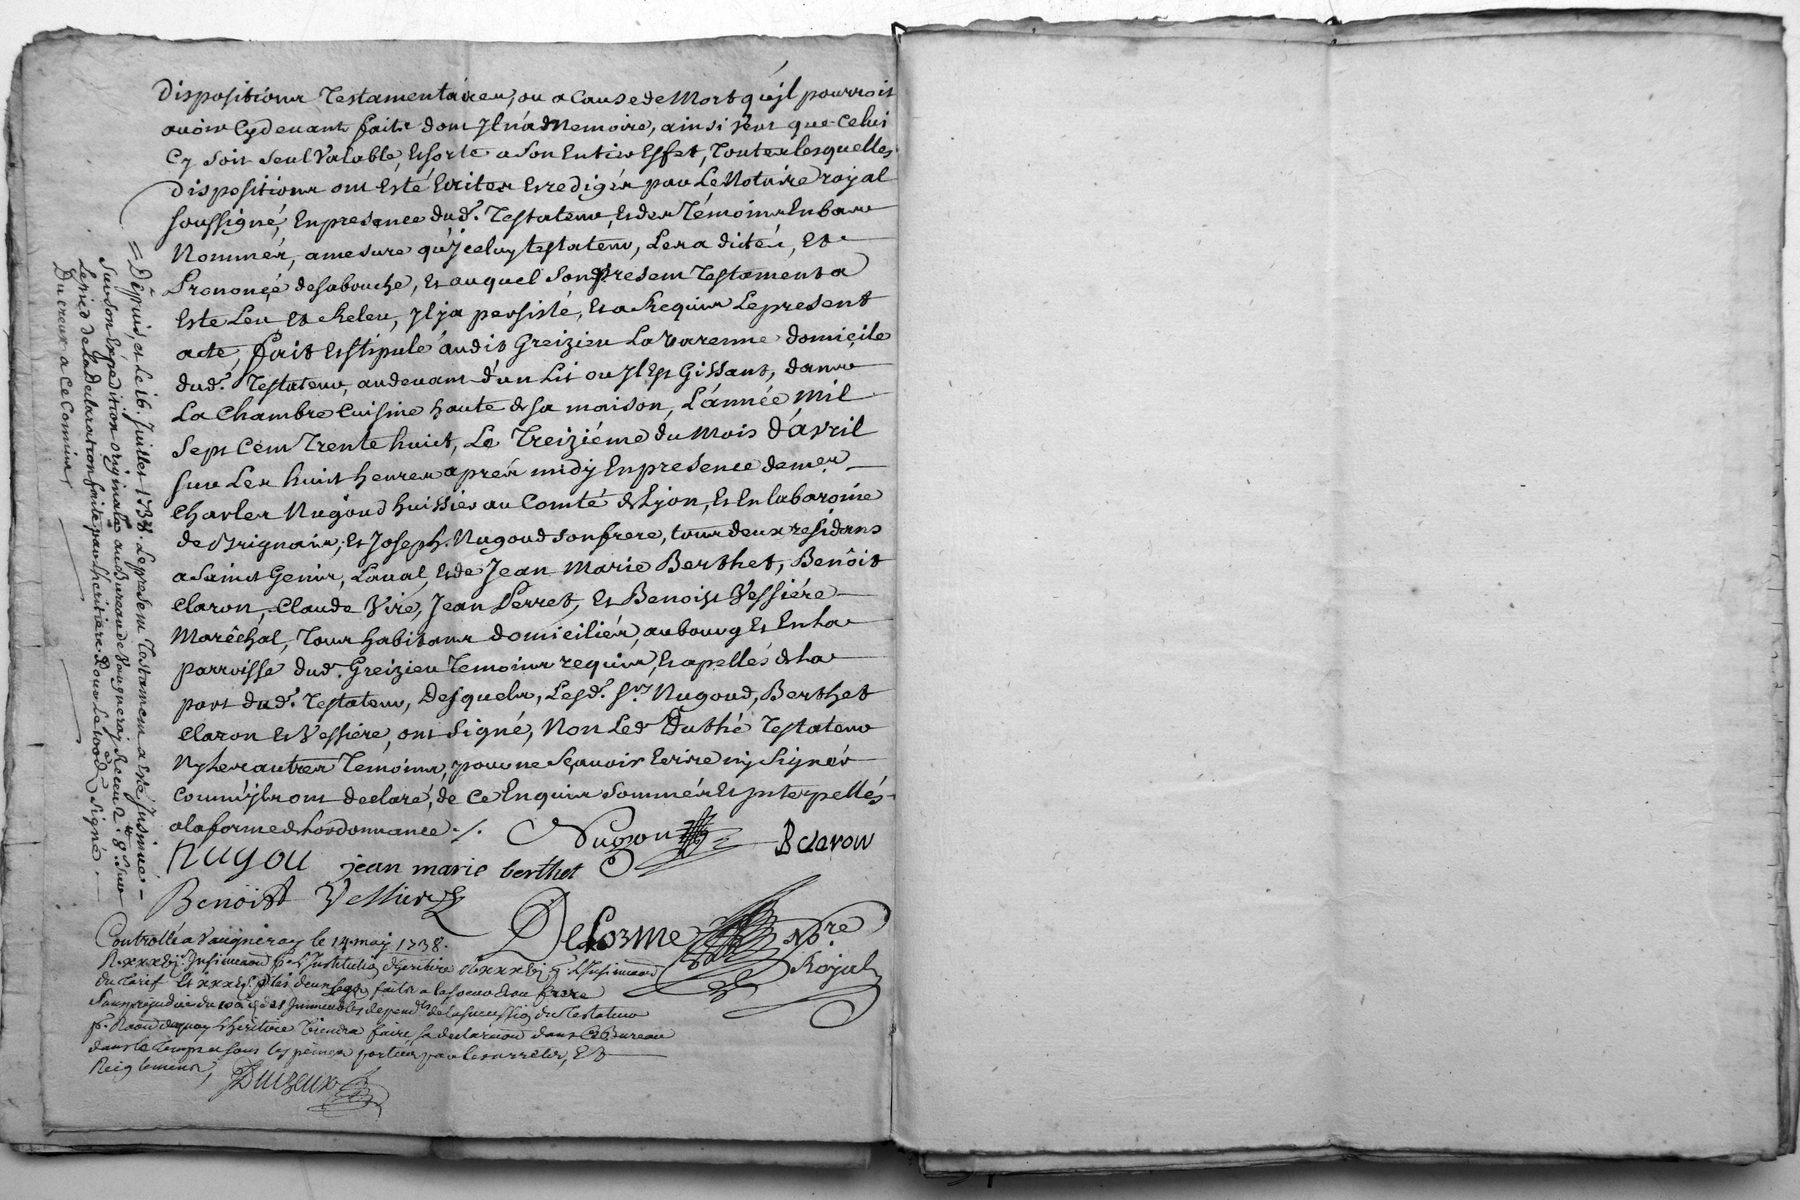 Dispositions Testamentaires, ou a Cause de Mort qu'jl pourroit
avoir Cydevant faits dont Jl n'a de Memoire, ainsi veut que Celui
Cy soit seul Valable, Et sorte a Son Entier Effet, Toutes lesquelles
Dispositions ont Esté Ecrites Et redigées par Le Notaire royal
soussigné, En presence dud.t Testateur, Et des Témoins En bas
Nommés, a mesure qu'jceluy testateur, Les a dictées, Et
Prononçé de sa bouche, Et auquel Sond. present Testament a
Esté Leu, Et Releu, Jl ja persisté, Et a Requis Le present
acte, fait Et stipulé audit Greizieu La Varenne domiçile
dud.t Testateur, au devant d'un Lit ou Jl Est Gissant, dans
La Chambre Cuisine haute de sa maison, L'année Mil
Sept Cent Trente huict, Le Treiziéme du Mois d'avril
sur Les huit heures aprés midy En presence de mes.
Charles Nugoud huissier au Comté de Lyon, Et En la baronie
de Brignais, Et Joseph Nugoud son frere, tous deux residans
a Saint Genis, Laval, Et de Jean Marie Berthet, Benoît
Claron, Claude Viré, Jean Perret, Et Benoist Vessiére
Maréchal, Tous habitans domiciliés, au bourg Et En La
parroisse dud. Greizieu Temoins requis, Et apellés de La
part dud.t Testateur, Desquels, Lesd. Srs Nugoud, Berthet
Claron Et Vessiére, ont Signé, Non Led Duthé Testateur
Ny Les autres Temoins, pour ne Sçavoir Ecrire ny Signer
Comm'jls ont declaré, de Ce Enquis Sommés Et jnterpellés
a la forme de L'ordonnance ./.
Nugoud
B claron
Nugou
jean marie berthet
Benoist Vessiere
Delorme No.re
Royal
Controllé a Vaugneray le 14 maj 1738.
dans le Temps et sous les peines portées par les arrets, Et
Reiglements,
Duizeux
= Depuis, et Le 16. Juillet 1738. Le present Testament a Eté Jnsinué
Sur son Expedition originale au Bureau de Vaugneray, Receu
Le pied de La declaration faite par L'heritiere pour Le Signé
Ducreux a Ce Commis